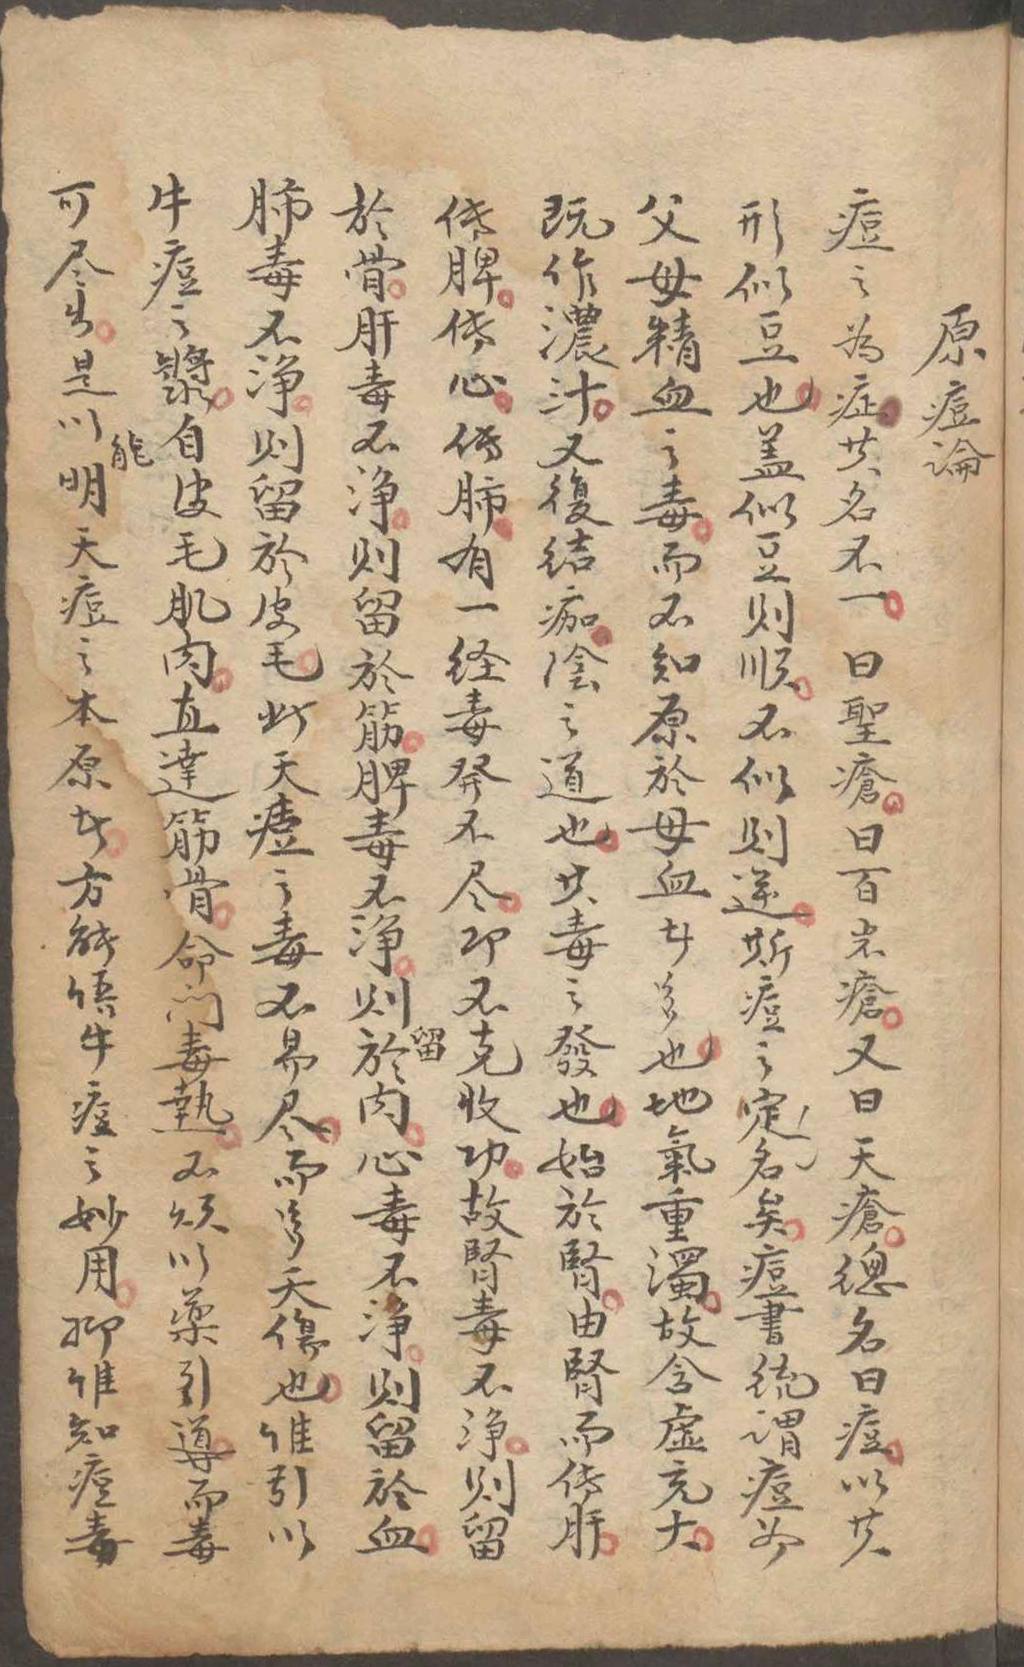 原痘論
痘之為症其名不一曰聖瘡曰百岁瘡又曰天瘡總名曰痘以其
形似豆也盖似豆則順不似則逆斯痘之定名矣痘書統謂痘乃
父母精血之毒而不知原於母血者多也地氣重濁故含虛充大
既作濃汁又復結痂陰之道也其毒之發也始於腎由腎而傳肝
傳脾傳心傳肺有一经毒發不尽即不克收功故腎毒不净則留
於骨肝毒不净則留於筋脾毒不净則留於肉心毒不净則留於血
肺毒不净則留於皮毛此天痘之毒不易尽而多夭傷也惟引以
牛痘之漿自皮毛肌肉直達筋骨命门毒熱不须以藥引導而毒
可尽出是以能明天痘之本原者方能悟牛痘之妙用抑惟知痘毒